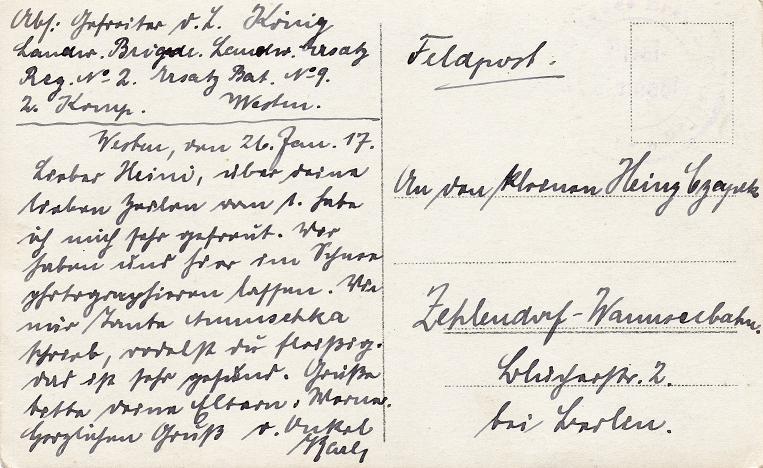 Abs: Gefreiter d. L. König
Landw. Brigde. Landw. Ersatz
Reg. No 2. Ersatz Bat. No 9.
2. Komp. Westen.
Westen, den 26. Jan. 17.
Lieber Heini, über deine
lieben Zeilen vom 1. habe
ich mich sehr gefreut. Wir
haben uns hier im Schnee
photographieren lassen. Wie
mir Tante Annuschka
schrieb, rodelst du fleißig.
das ist sehr gesund. Grüße
bitte deine Eltern u. Werner.
Herzlichen Gruß v. Onkel
Karl
Feldpost.
An den kleinen Heinz Czapek
Zehlendorf-Wannseebahn.
Blücherstr. 2.
bei Berlin.